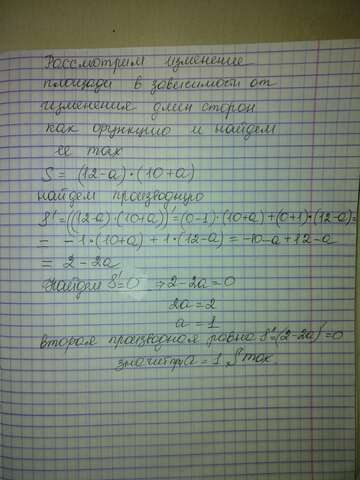 Рассмотрим изменение
площади в зависимости от
изменения длин сторон
как функцию и найдем
ее max
S = (12-a)·(10+a)
найдем производную
S'=((12-a)·(10+a))'=(0-1)·(10+a)+(0+1)·(12-a)=
= -1·(10+a) + 1·(12-a) = -10-a+12-a
= 2-2a
Найдем S'=0 ⇒ 2-2a=0
2a=2
a=1
вторая производная равна S''=(2-2a)'=0
значит при a=1 S max